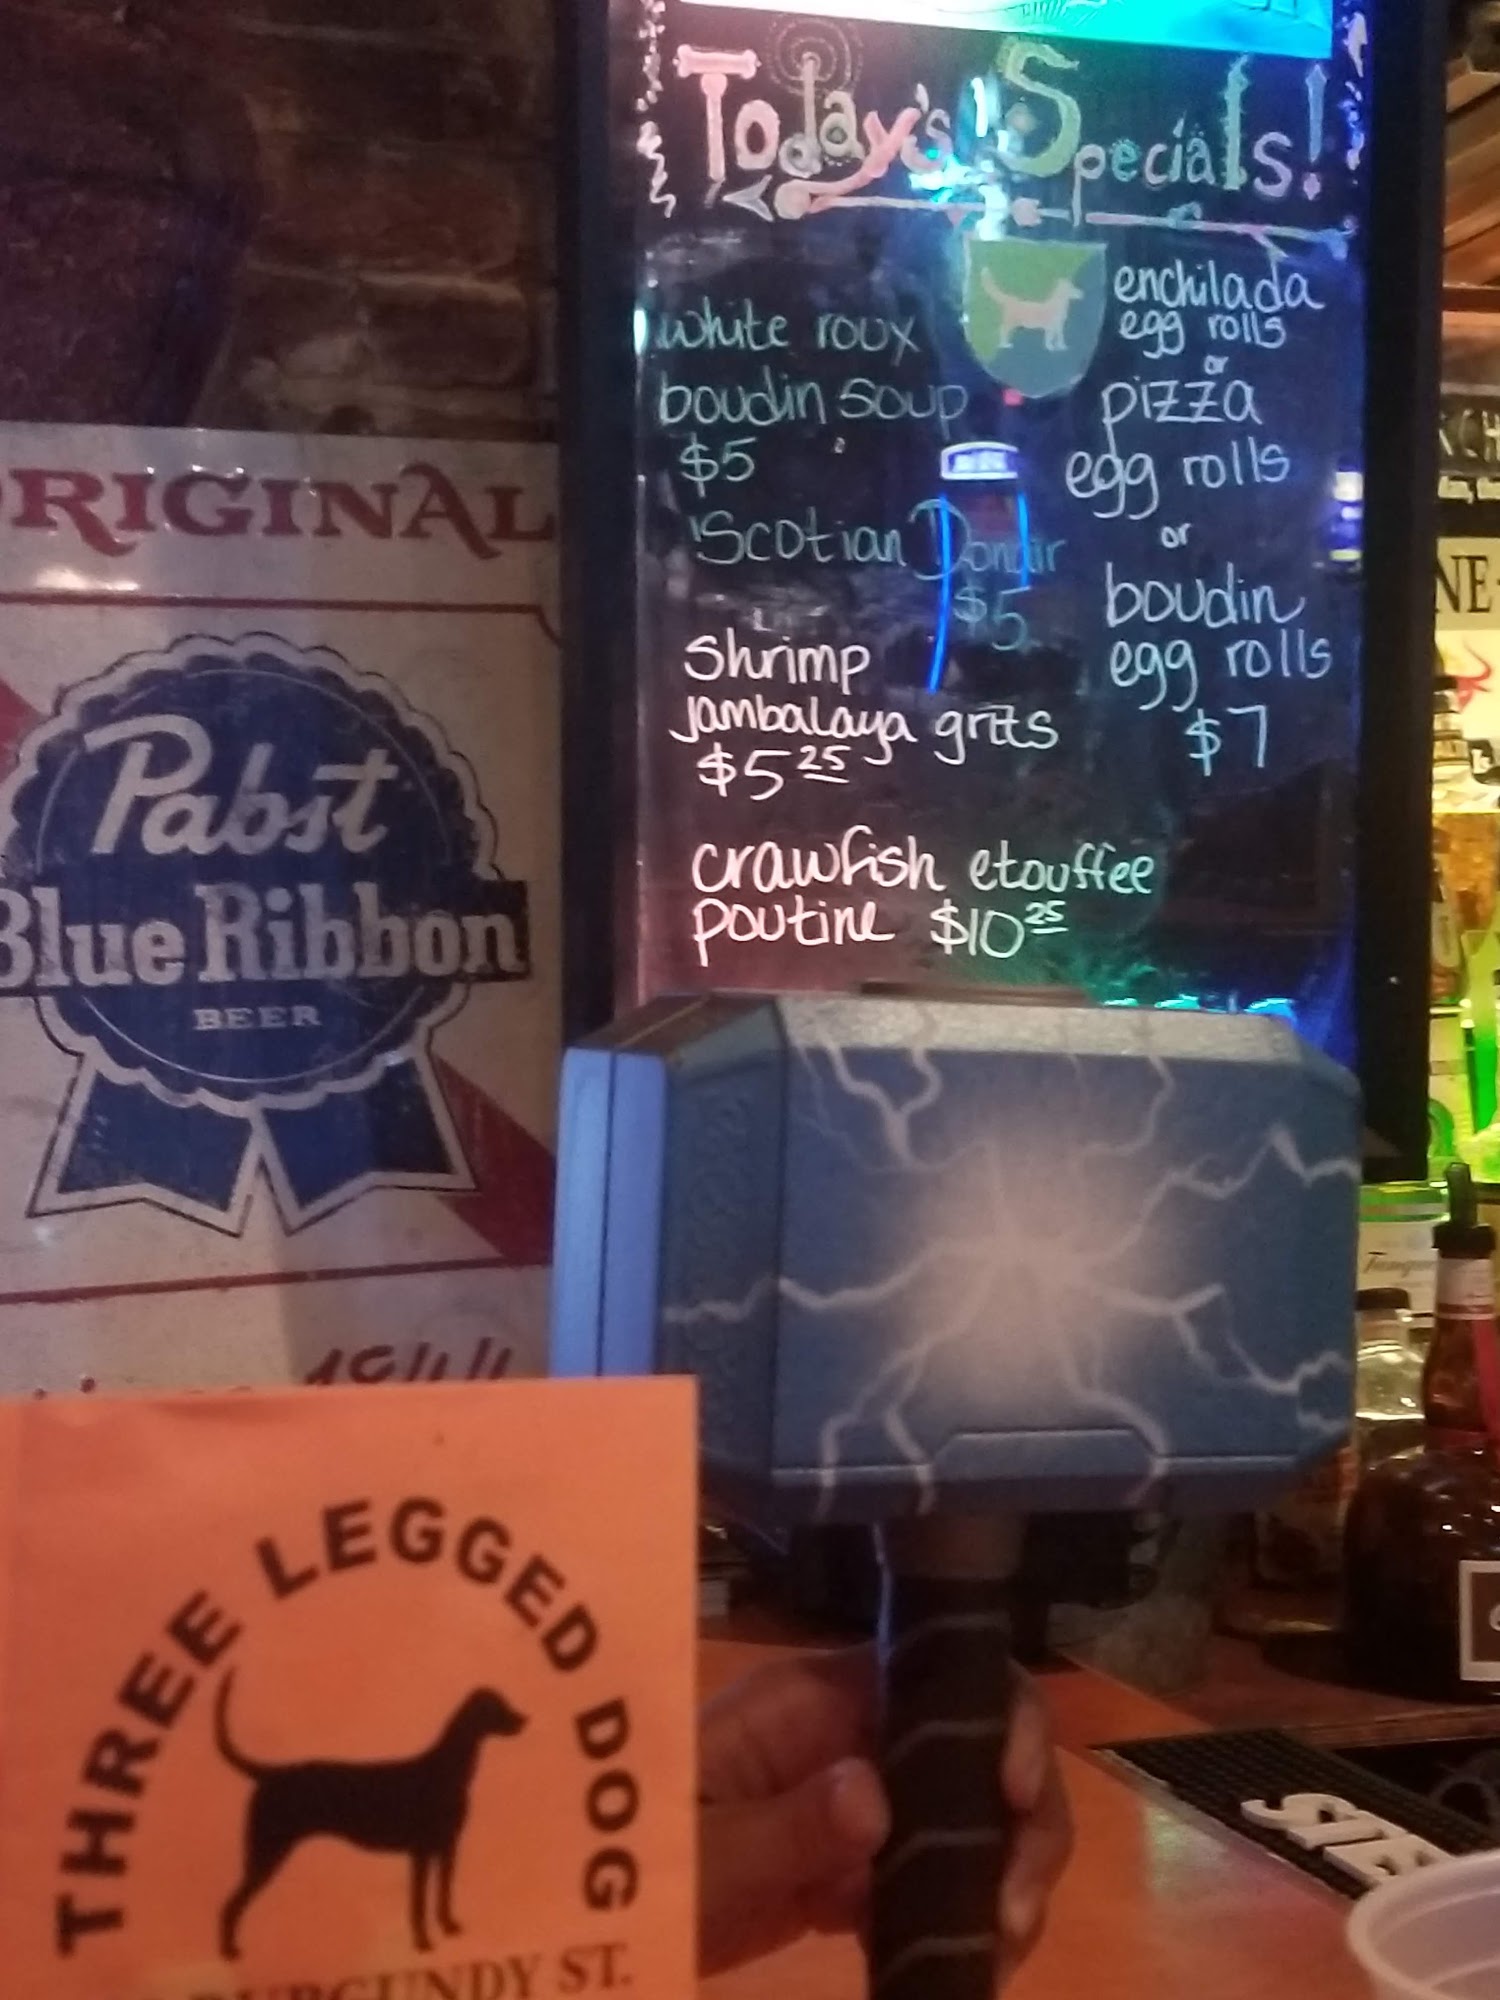 Today's Specials!
white roux
boudin soup
$5
'Scotian Donair
$5
Shrimp
jambalaya grits
$5 25
crawfish etouffee
poutine $10 25
enchilada
egg rolls
or
pizza
egg rolls
or
boudin
egg rolls
$7
ORIGINAL
Pabst
Blue Ribbon
BEER
THREE LEGGED DOG
BURGUNDY ST.